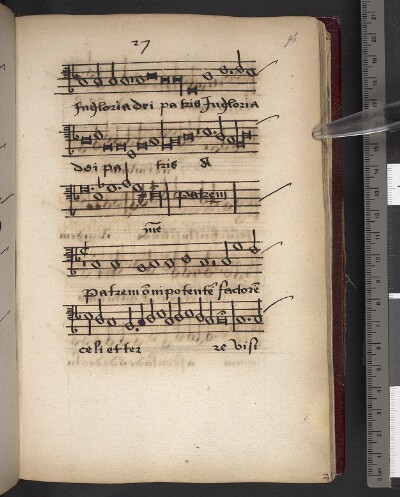 27
Jngloria dei pa tris Jngloria
dei pa tris A
Patrem
me
Patrem õnipotentē factorē
celi et ter re visi